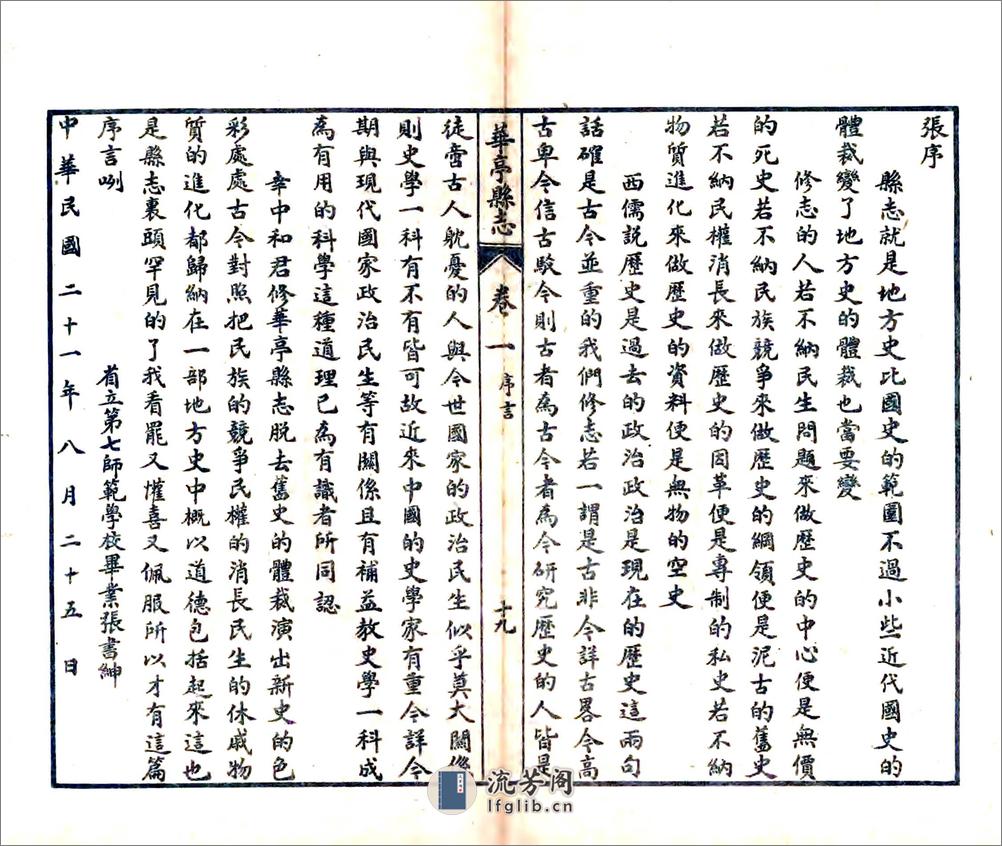 張序
縣志就是地方史比國史的範圍不過小些近代國史的
體裁變了地方史的體裁也當要變
修志的人若不納民生問題來做歷史的中心便是無價
的死史若不納民族競爭來做歷史的綱領便是泥古的舊史
若不納民權消長來做歷史的因革便是專制的私史若不納
物質進化來做歷史的資料便是無物的空史
西儒説歷史是過去的政治政治是現在的歷史這兩句
話確是古今並重的我們修志若一謂是古非今詳古畧今高
古卑今信古駁今則古者為古今者為今研究歷史的人皆是
華亭縣志
卷一
序言
十九
徒當古人躭憂的人與今世國家的政治民生似乎莫大關係
則史學一科有不有皆可故近來中國的史學家有重今詳今
期與現代國家政治民生等有關係且有補益教史學一科成
為有用的科學這種道理已為有識者所同認
幸中和君修華亭縣志脱去舊史的體裁演出新史的色
彩處處古今對照把民族的競爭民權的消長民生的休戚物
質的進化都歸納在一部地方史中概以道德包括起來這也
是縣志裏頭罕見的了我看罷又懽喜又佩服所以才有這篇
序言咧
省立第七師範學校畢業張書紳
中華民國二十一年八月二十五日
流芳阁
lfglib.cn